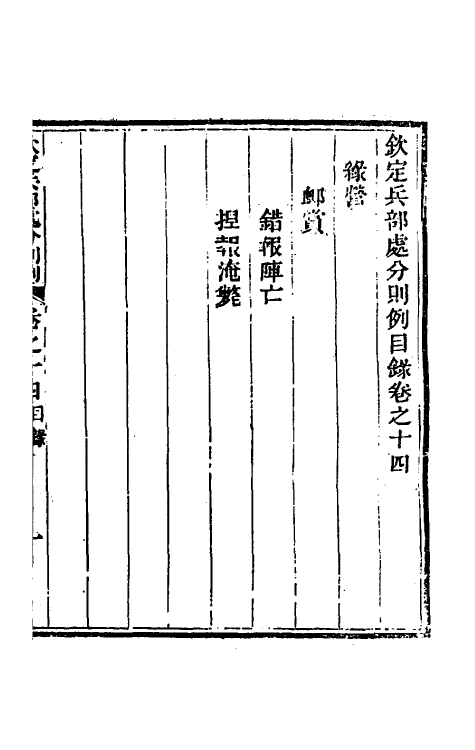 欽定兵部處分則例目錄卷之十四
綠營
卹賞
錯報陣亡
捏報淹斃
欽定兵部處分則例
卷之十四目錄
一